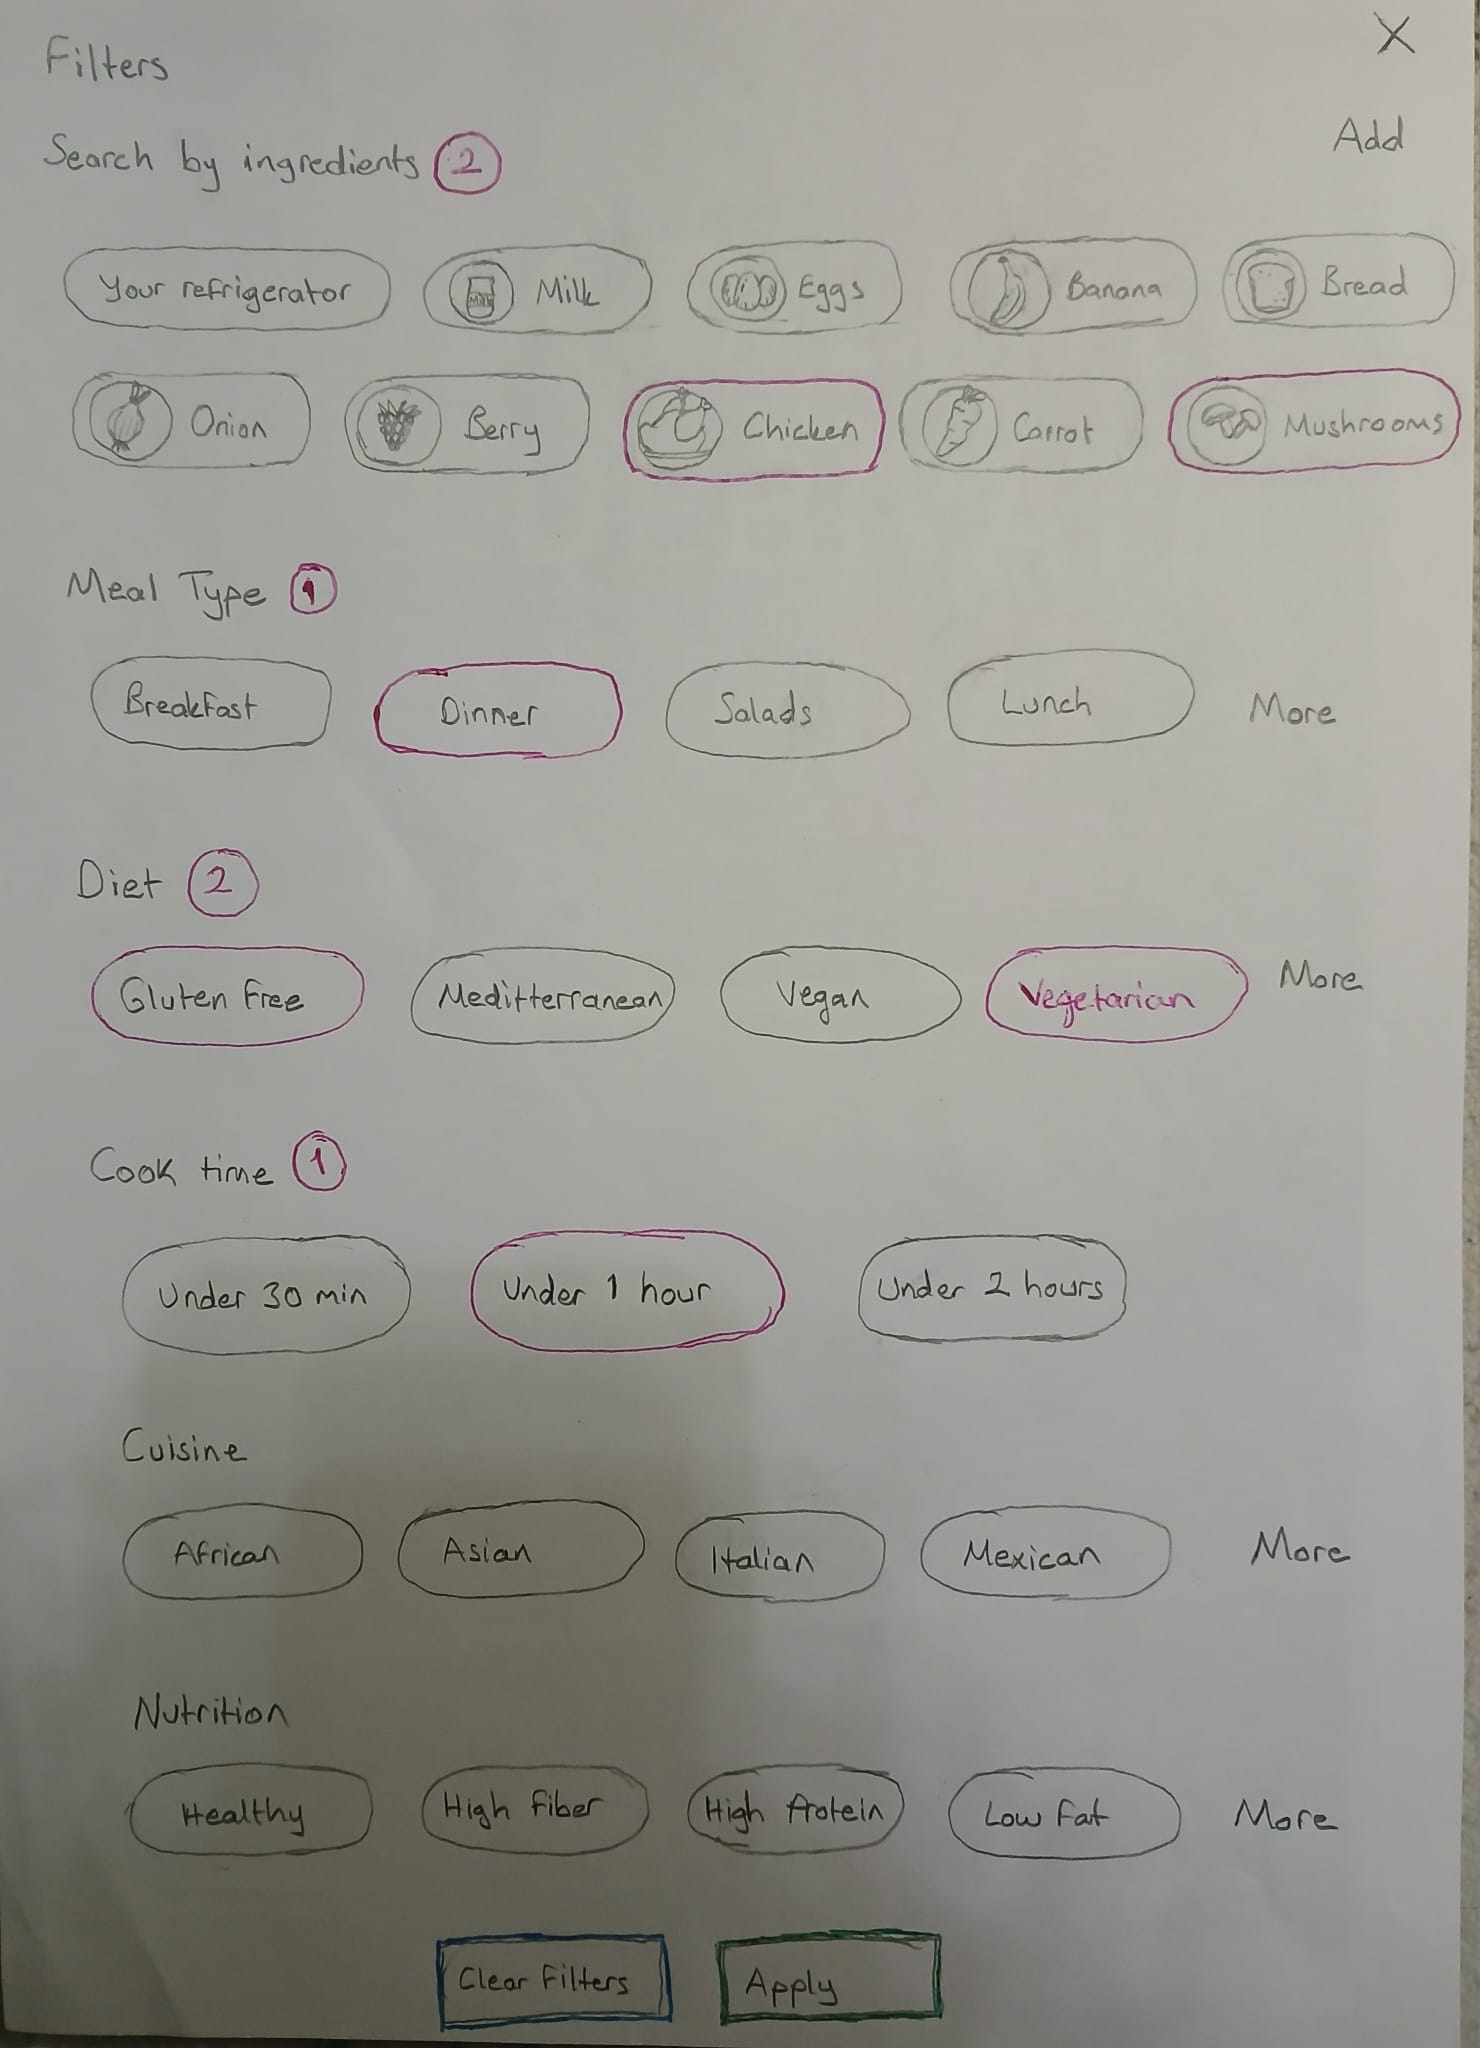 Filters X
Search by ingredients 2 Add
Your refrigerator Milk Milk Eggs Banana Bread
Onion Berry Chicken Carrot Mushrooms
Meal Type 1
Breakfast Dinner Salads Lunch More
Diet 2
Gluten Free Meditterranean Vegan Vegetarian More
Cook time 1
Under 30 min Under 1 hour Under 2 hours
Cuisine
African Asian Italian Mexican More
Nutrition
Healthy High Fiber High Protein Low Fat More
Clear Filters Apply